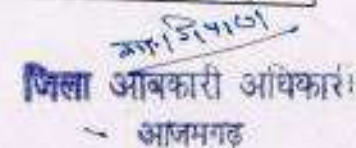 जिला आबकारी अधिकारी
आजमगढ़